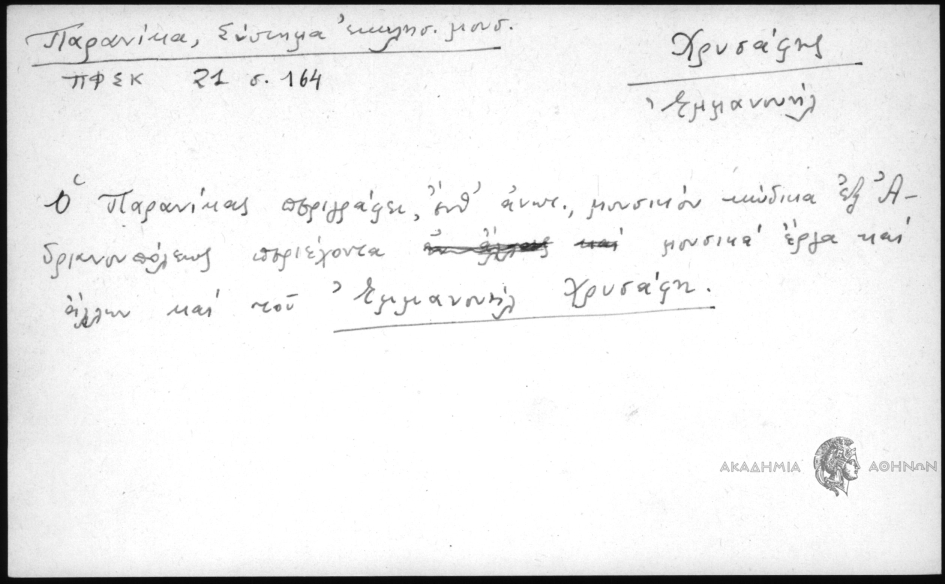 Παρανίκα, Σύστημα ἐκκλησ. μουσ.
ΠΦΣΚ 21 σ. 164
Χρυσάφης
Ἐμμανουήλ
Ὁ Παρανίκας περιγράφει, ἔνθ' ἀνωτ., μουσικόν κώδικα ἐξ Ἀ-
δριανουπόλεως περιέχοντα μουσικά ἔργα καί
ἄλλων καί τοῦ Ἐμμανουήλ Χρυσάφη.
ΑΚΑΔΗΜΙΑ ΑΘΗΝΩΝ